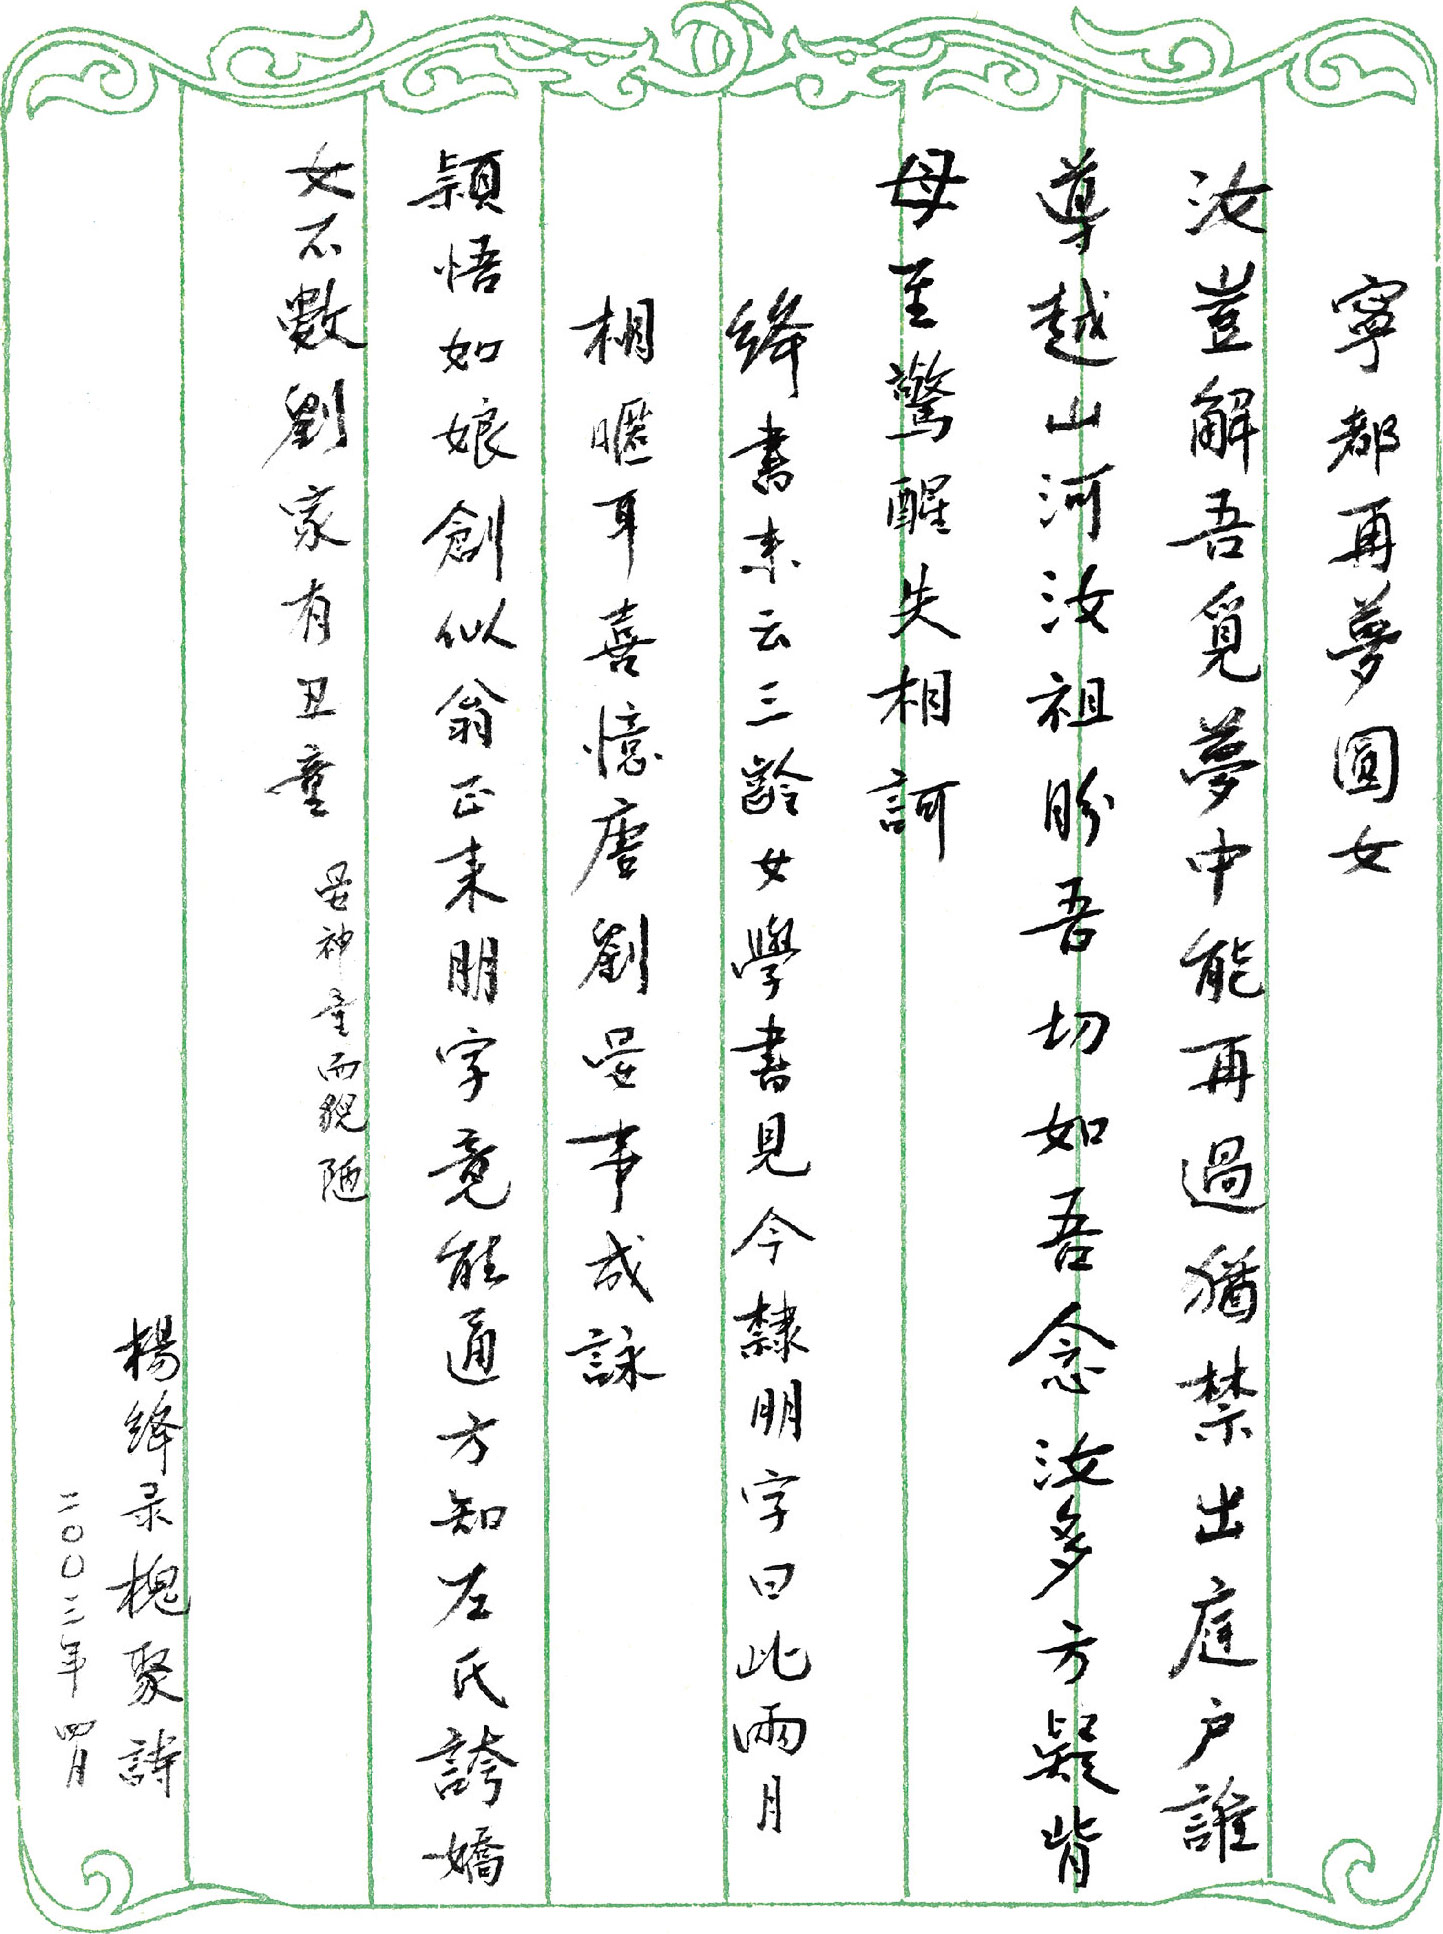 寧都再夢圓女
汝豈解吾覓夢中能再過猶禁出庭户誰
導越山河汝祖盼吾切如吾念汝多方疑背
母至驚醒失相訶
絳書来云三齡女學書見今隸朋字曰此兩月
相暱耳喜憶唐劉晏事成詠
穎悟如娘創似翁正来朋字竟能通方知左氏誇嬌
女不數劉家有丑童
晏神童而貌陋
楊絳录槐聚詩
二〇〇二年四月